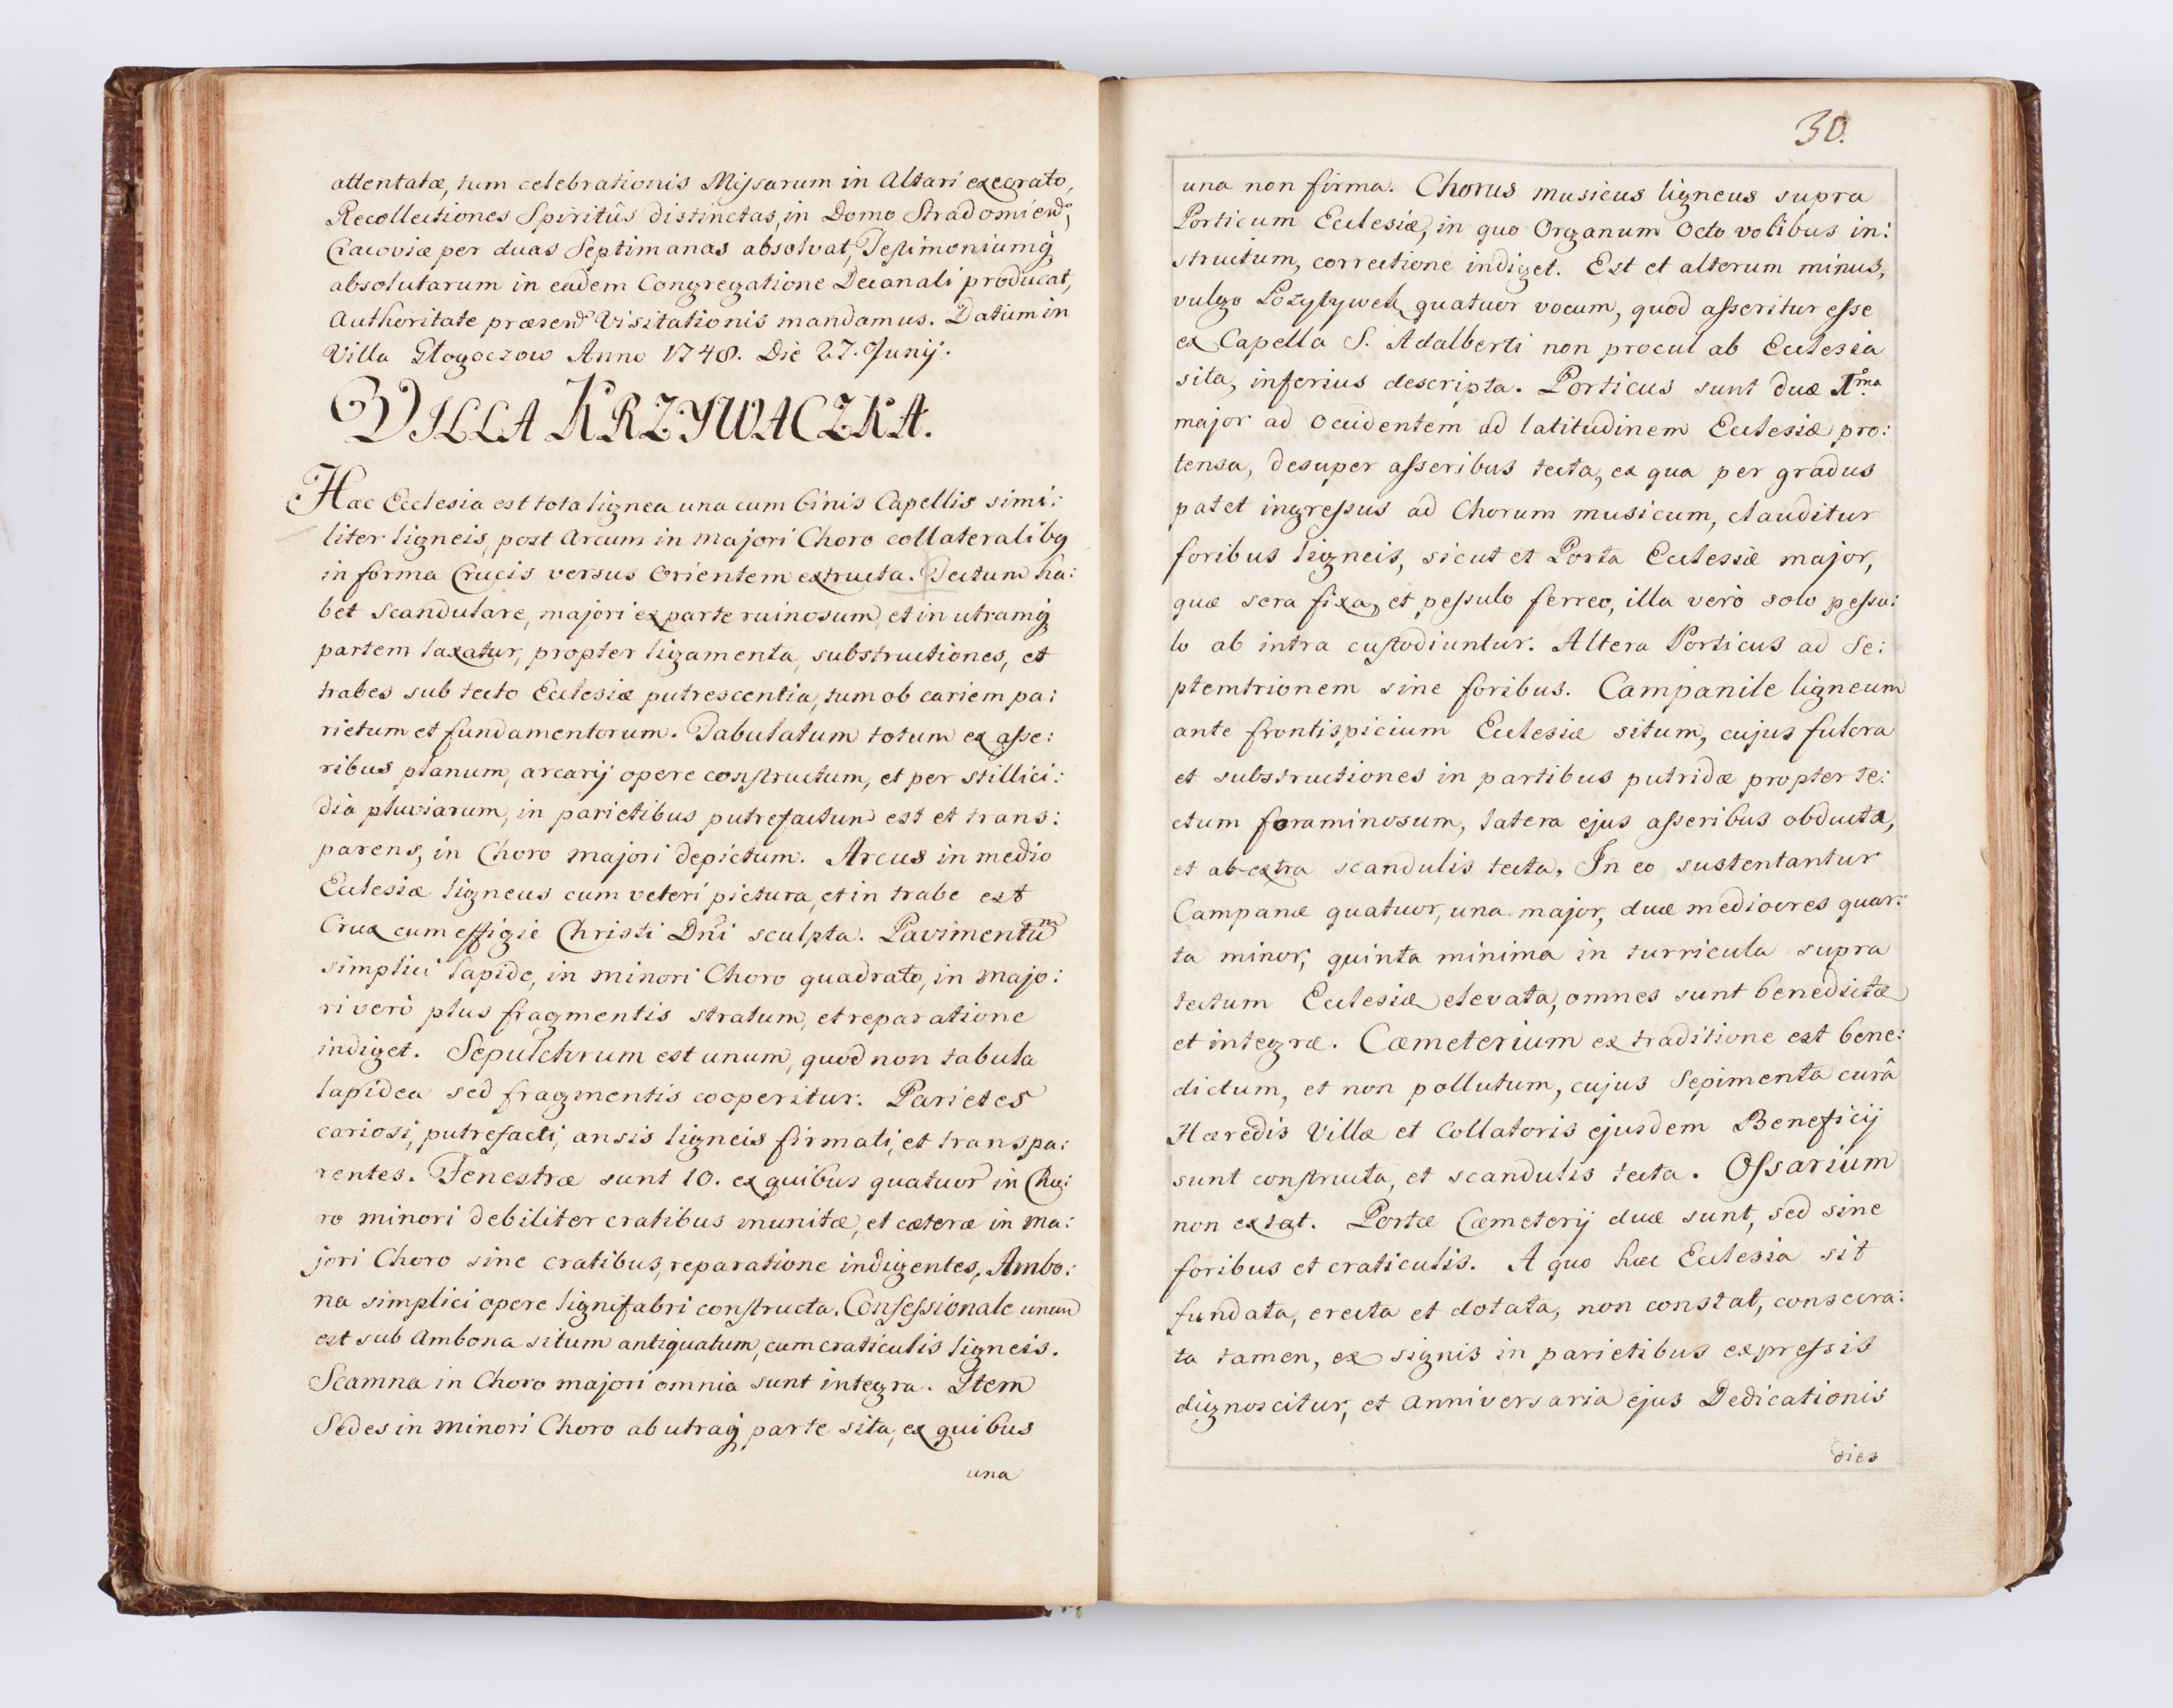 attentatæ, tum celebrationis Missarum in Altari execrato,
Recollectiones Spiritûs distinctas, in Domo Stradomiendˢ,
Cracoviæ per duas Septimanas absolvat, Testimoniumq́
absolutarum in eâdem Congregatione Decanali producat,
Authoritate præsendˢ Visitationis mandamus. Datum in
Villa Głogoczow Anno 1748. Die 27. Junij.
VILLA KRZYWACZKA.
Hac Ecclesia est tota lignea una cum binis Capellis simi:
liter ligneis, post Arcum in majori Choro collateralibq
in forma Crucis versus Orientem extructa. Tectum ha:
bet Scandulare, majori ex parte ruinosum, et in utramq́
partem laxatur, propter ligamenta, substructiones, et
trabes sub tecto Ecclesiæ putrescentia, tum ob cariem pa:
rietum et fundamentorum. Tabulatum totum ex asse:
ribus planum, arcarij opere constructum, et per stillici:
dia pluviarum, in parietibus putrefactum est et trans:
parens, in Choro majori depictum. Arcus in medio
Ecclesiæ ligneus cum veteri pictura, et in trabe est
Crux cum effigie Christi Dñi sculpta. Pavimentũ
simplici lapide, in minori Choro quadrato, in majo:
ri verò plus fragmentis stratum, et reparatione
indiget. Sepulchrum est unum, quod non tabula
lapidea sed fragmentis cooperitur. Parietes
cariosi, putrefacti, ansis ligneis firmati, et transpa:
rentes. Fenestræ sunt 10. ex quibus quatuor in Cho:
ro minori debiliter cratibus munitæ, et cæteræ in ma:
jori Choro sine cratibus, reparatione indigentes. Ambo:
na simplici opere lignifabri constructa. Confessionale unum
est sub Ambona situm antiquatum, cum craticulis ligneis.
Scamna in Choro majori omnia sunt integra. Item
Sedes in minori Choro ab utraq́ parte sita, ex quibus
una
30.
una non firma. Chorus musicus ligneus supra
Porticum Ecclesiæ, in quo Organum Octo vocibus in:
structum, correctione indiget. Est et alterum minus,
vulgo Pozytywek quatuor vocum, quod asseritur esse
ex Capella S. Adalberti non procul ab Ecclesia
sita, inferius descripta. Porticus sunt duæ 1ᵐᵃ
major ad Occidentem ad latitudinem Ecclesiæ pro:
tensa, desuper asseribus tecta, ex qua per gradus
patet ingressus ad Chorum musicum, clauditur
foribus ligneis, sicut et Porta Ecclesiæ major,
quæ sera fixa, et pessulo ferreo, illa verò solo pessu:
lo ab intra custodiuntur. Altera Porticus ad Se:
ptemtrionem sine foribus. Campanile ligneum
ante frontispicium Ecclesiæ situm, cujus fulcra
et substructiones in partibus putridæ propter te:
ctum foraminosum, latera ejus asseribus obducta,
et ab extra scandulis tecta. In eo sustentantur
Campanæ quatuor, una major, duæ mediocres quar:
ta minor, quinta minima in turricula supra
tectum Ecclesiæ elevata, omnes sunt benedictæ
et integræ. Cæmeterium ex traditione est bene:
dictum, et non pollutum, cujus Sepimenta curâ
Hæredis Villæ et Collatoris ejusdem Beneficij
sunt constructa, et scandulis tecta. Ossarium
non extat. Portæ Cæmeterij duæ sunt, sed sine
foribus et craticulis. A quo hæc Ecclesia sit
fundata, erecta et dotata, non constat, consecra:
ta tamen, ex signis in parietibus expressis
dignoscitur, et Anniversaria ejus Dedicationis
dies